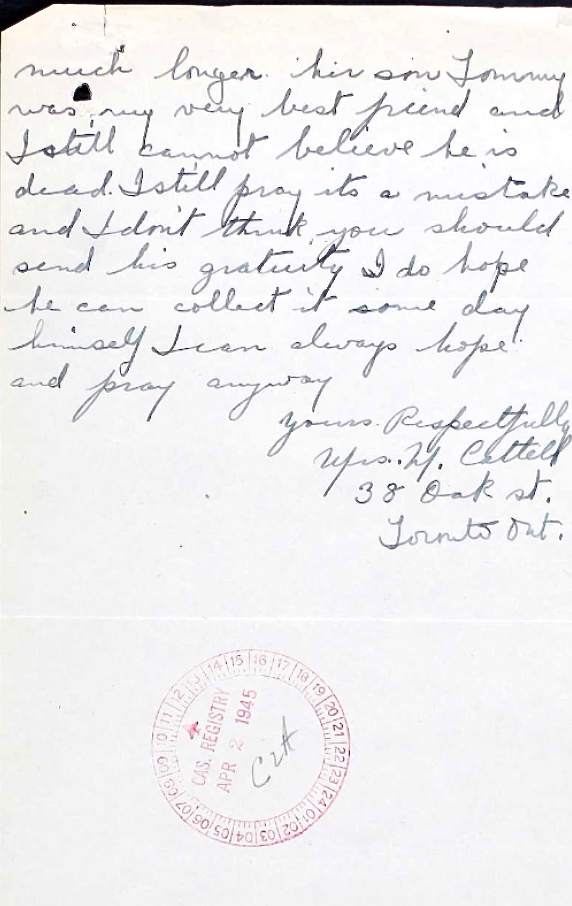 much longer. his son Tommy
was my very best friend and
I still cannot believe he is
dead. I still pray its a mistake
and I don't think you should
send his gratuity I do hope
he can collect it some day
himself I can always hope
and pray anyway
yours Respectfully
Mrs. M. Cattell
38 Oak st.
Toronto Ont.
CAS. REGISTRY
APR 2 1945
01 02 03 04 05 06 07 08 09 10 11 12 13 14 15 16 17 18 19 20 21 22 23 24